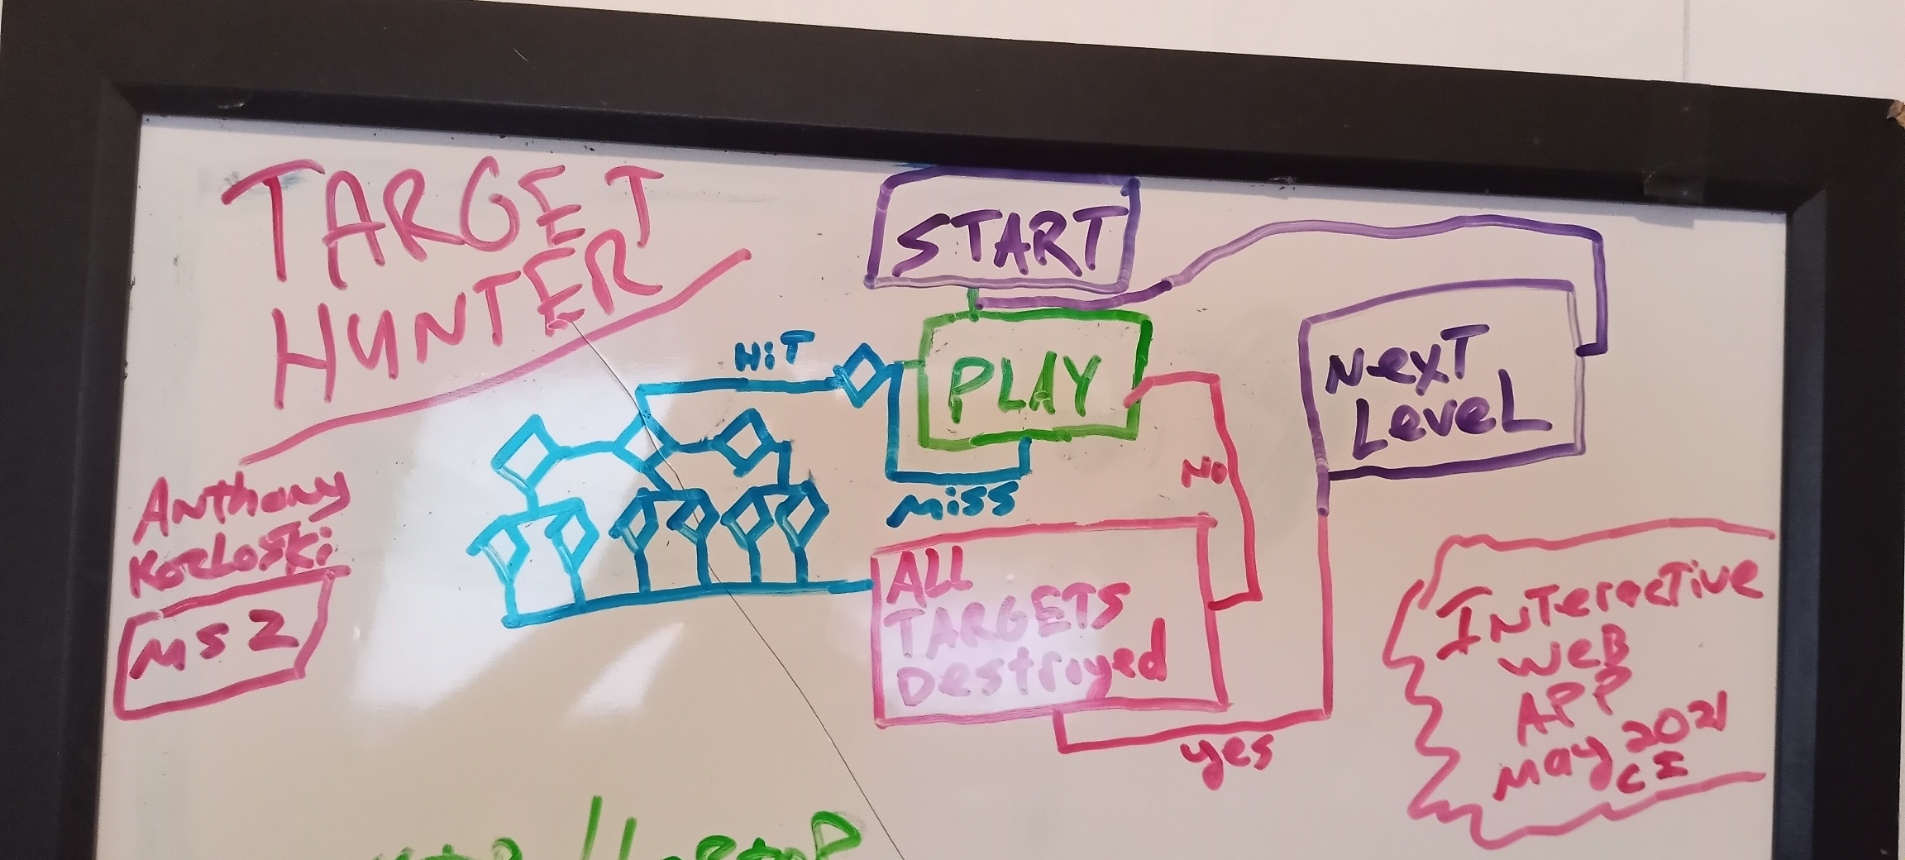 TARGET
HUNTER
Anthony
Kozloski
MS2
START
PLAY
HiT
Miss
No
ALL
TARGETS
Destroyed
yes
NexT
LeveL
INTeracTive
weB
APP
may 2021
CI